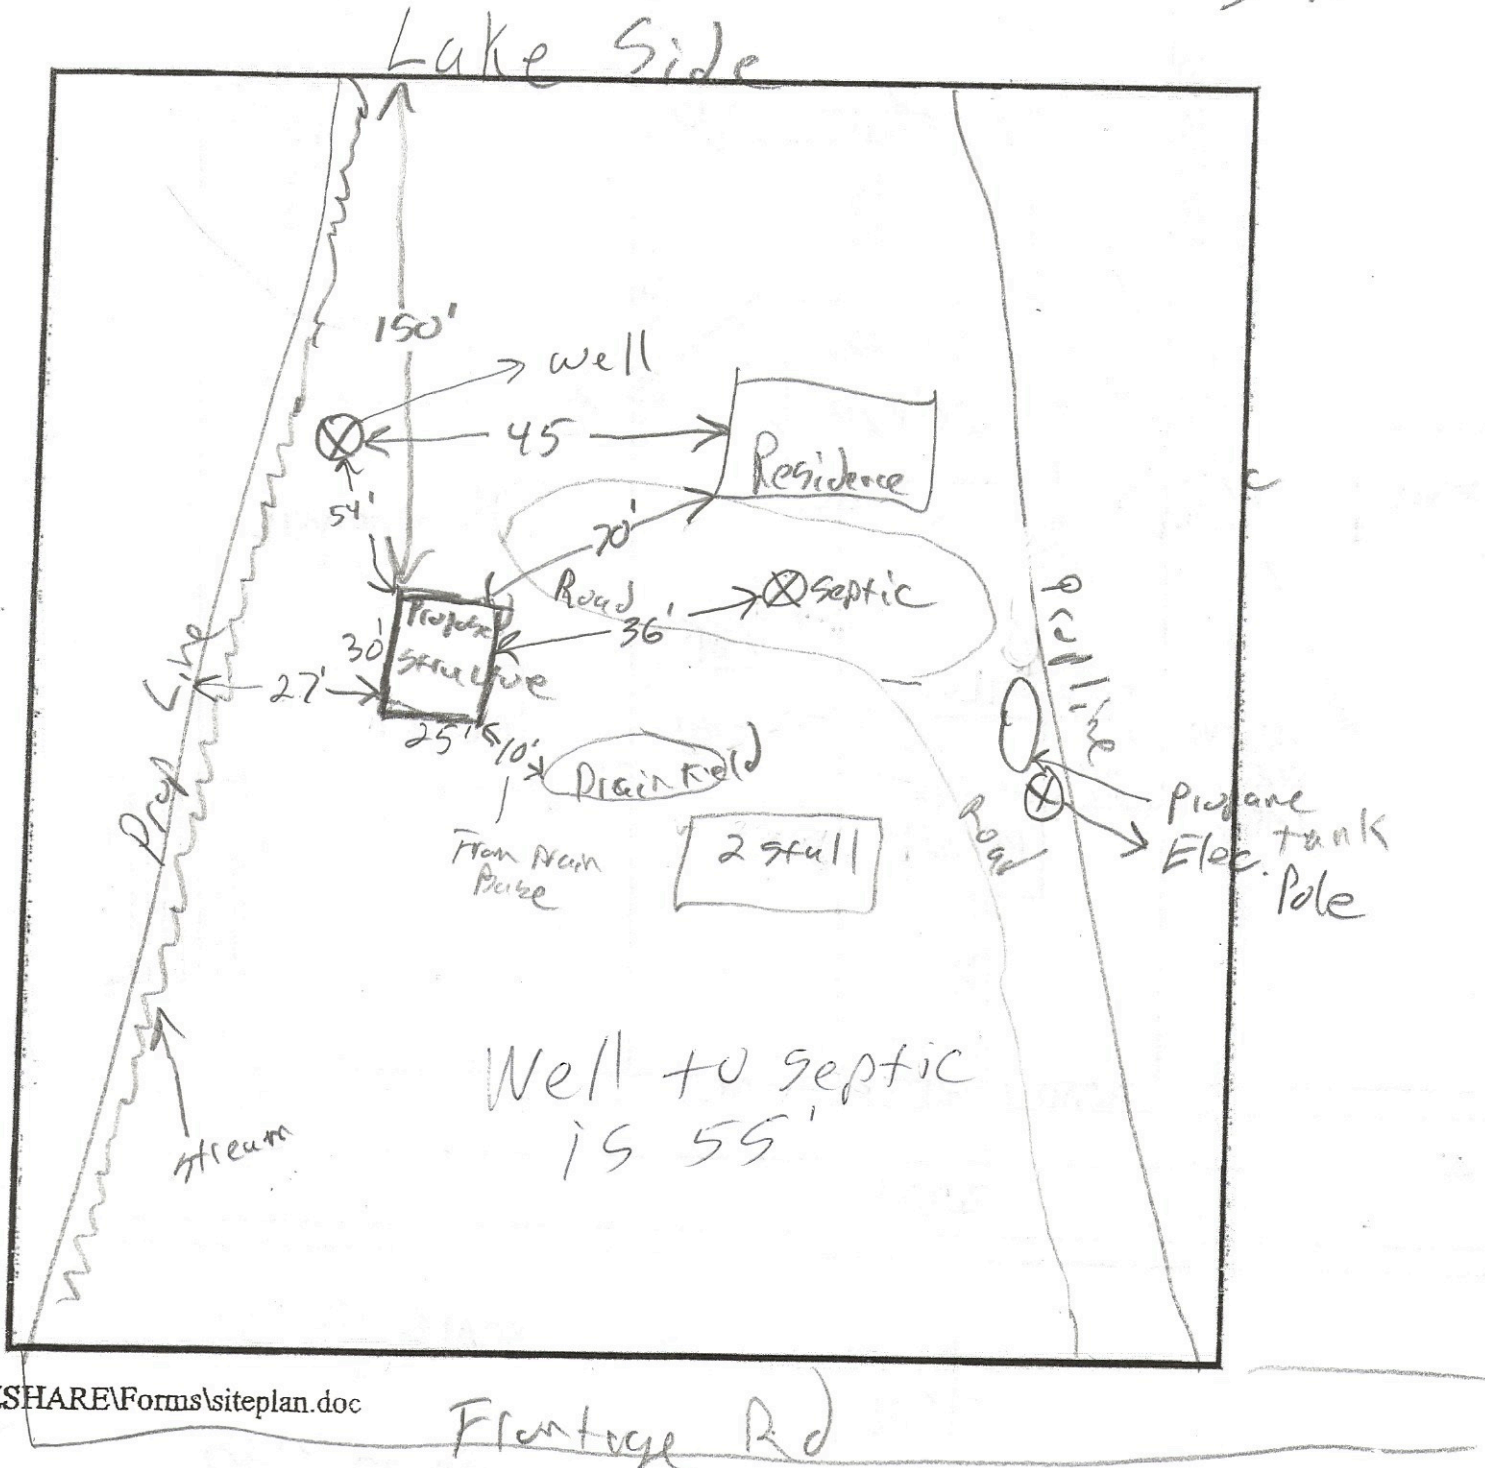 Lake Side
150'
well
45
Residence
54'
70'
Road
Septic
36'
Proposed
structure
30'
27'
25'
10'
Drainfield
From Drain
2 stall
Prop Line
Road
Propane
tank
Elec.
Pole
Well to septic
is 55'
stream
SHARE\Forms\siteplan.doc
Frontage Rd